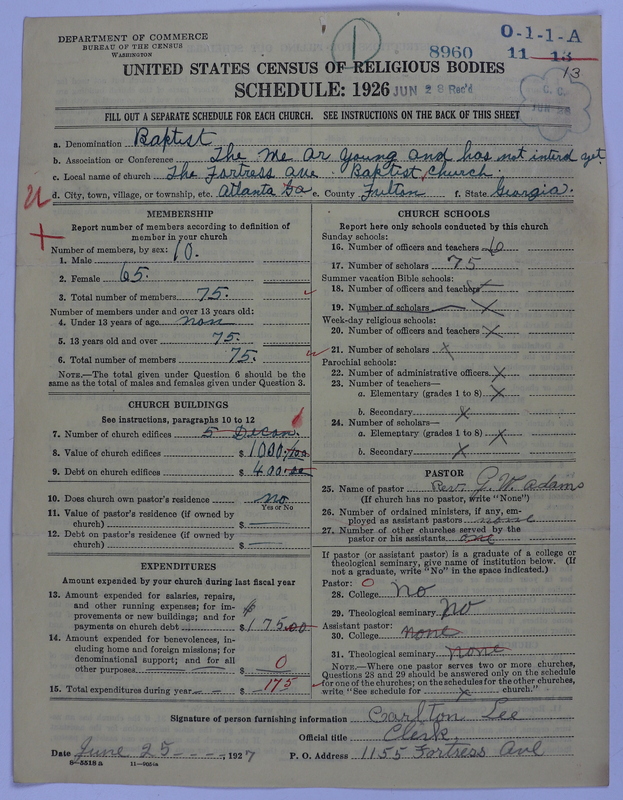 DEPARTMENT OF COMMERCE
BUREAU OF THE CENSUS
WASHINGTON
1
8960
O-1-1-A
11 13
13
UNITED STATES CENSUS OF RELIGIOUS BODIES
SCHEDULE: 1926
JUN 28 Rec'd
C. C.
JUN 28
FILL OUT A SEPARATE SCHEDULE FOR EACH CHURCH. SEE INSTRUCTIONS ON THE BACK OF THIS SHEET
a. Denomination Baptist
b. Association or Conference The Me ar young and has not interd yet
c. Local name of church The Fortress ave. Baptist Church.
d. City, town, village, or township, etc. Atlanta Ga e. County Fulton f. State Georgia.
MEMBERSHIP
Report number of members according to definition of member in your church
Number of members, by sex:
1. Male 10.
2. Female 65.
3. Total number of members 75.
Number of members under and over 13 years old:
4. Under 13 years of age non
5. 13 years old and over 75.
6. Total number of members 75.
NOTE.—The total given under Question 6 should be the same as the total of males and females given under Question 3.
CHURCH BUILDINGS
See instructions, paragraphs 10 to 12
7. Number of church edifices 5 Decon. 1
8. Value of church edifices $ 1000.00
9. Debt on church edifices $ 400.00
10. Does church own pastor's residence no
Yes or No
11. Value of pastor's residence (if owned by church) $
12. Debt on pastor's residence (if owned by church) $
EXPENDITURES
Amount expended by your church during last fiscal year
13. Amount expended for salaries, repairs, and other running expenses; for improvements or new buildings; and for payments on church debt $ 175.00
14. Amount expended for benevolences, including home and foreign missions; for denominational support; and for all other purposes $ 0
15. Total expenditures during year $ 175
CHURCH SCHOOLS
Report here only schools conducted by this church
Sunday schools:
16. Number of officers and teachers 6
17. Number of scholars 75
Summer vacation Bible schools:
18. Number of officers and teachers x
19. Number of scholars x
Week-day religious schools:
20. Number of officers and teachers x
21. Number of scholars x
Parochial schools:
22. Number of administrative officers x
23. Number of teachers—
a. Elementary (grades 1 to 8) x
b. Secondary x
24. Number of scholars—
a. Elementary (grades 1 to 8) x
b. Secondary x
PASTOR
25. Name of pastor Rev. G. W. Adams
(If church has no pastor, write "None")
26. Number of ordained ministers, if any, employed as assistant pastors none
27. Number of other churches served by the pastor or his assistants one
If pastor (or assistant pastor) is a graduate of a college or theological seminary, give name of institution below. (If not a graduate, write "No" in the space indicated.)
Pastor: 0
28. College No
29. Theological seminary No
Assistant pastor:
30. College none
31. Theological seminary none
NOTE.—Where one pastor serves two or more churches, Questions 28 and 29 should be answered only on the schedule for one of the churches; on the schedules for the other churches, write "See schedule for x church."
Signature of person furnishing information Carlton Lee
Official title Clerk.
Date June 25 , 1927
P. O. Address 1155 Fortress Ave
8—5518 a